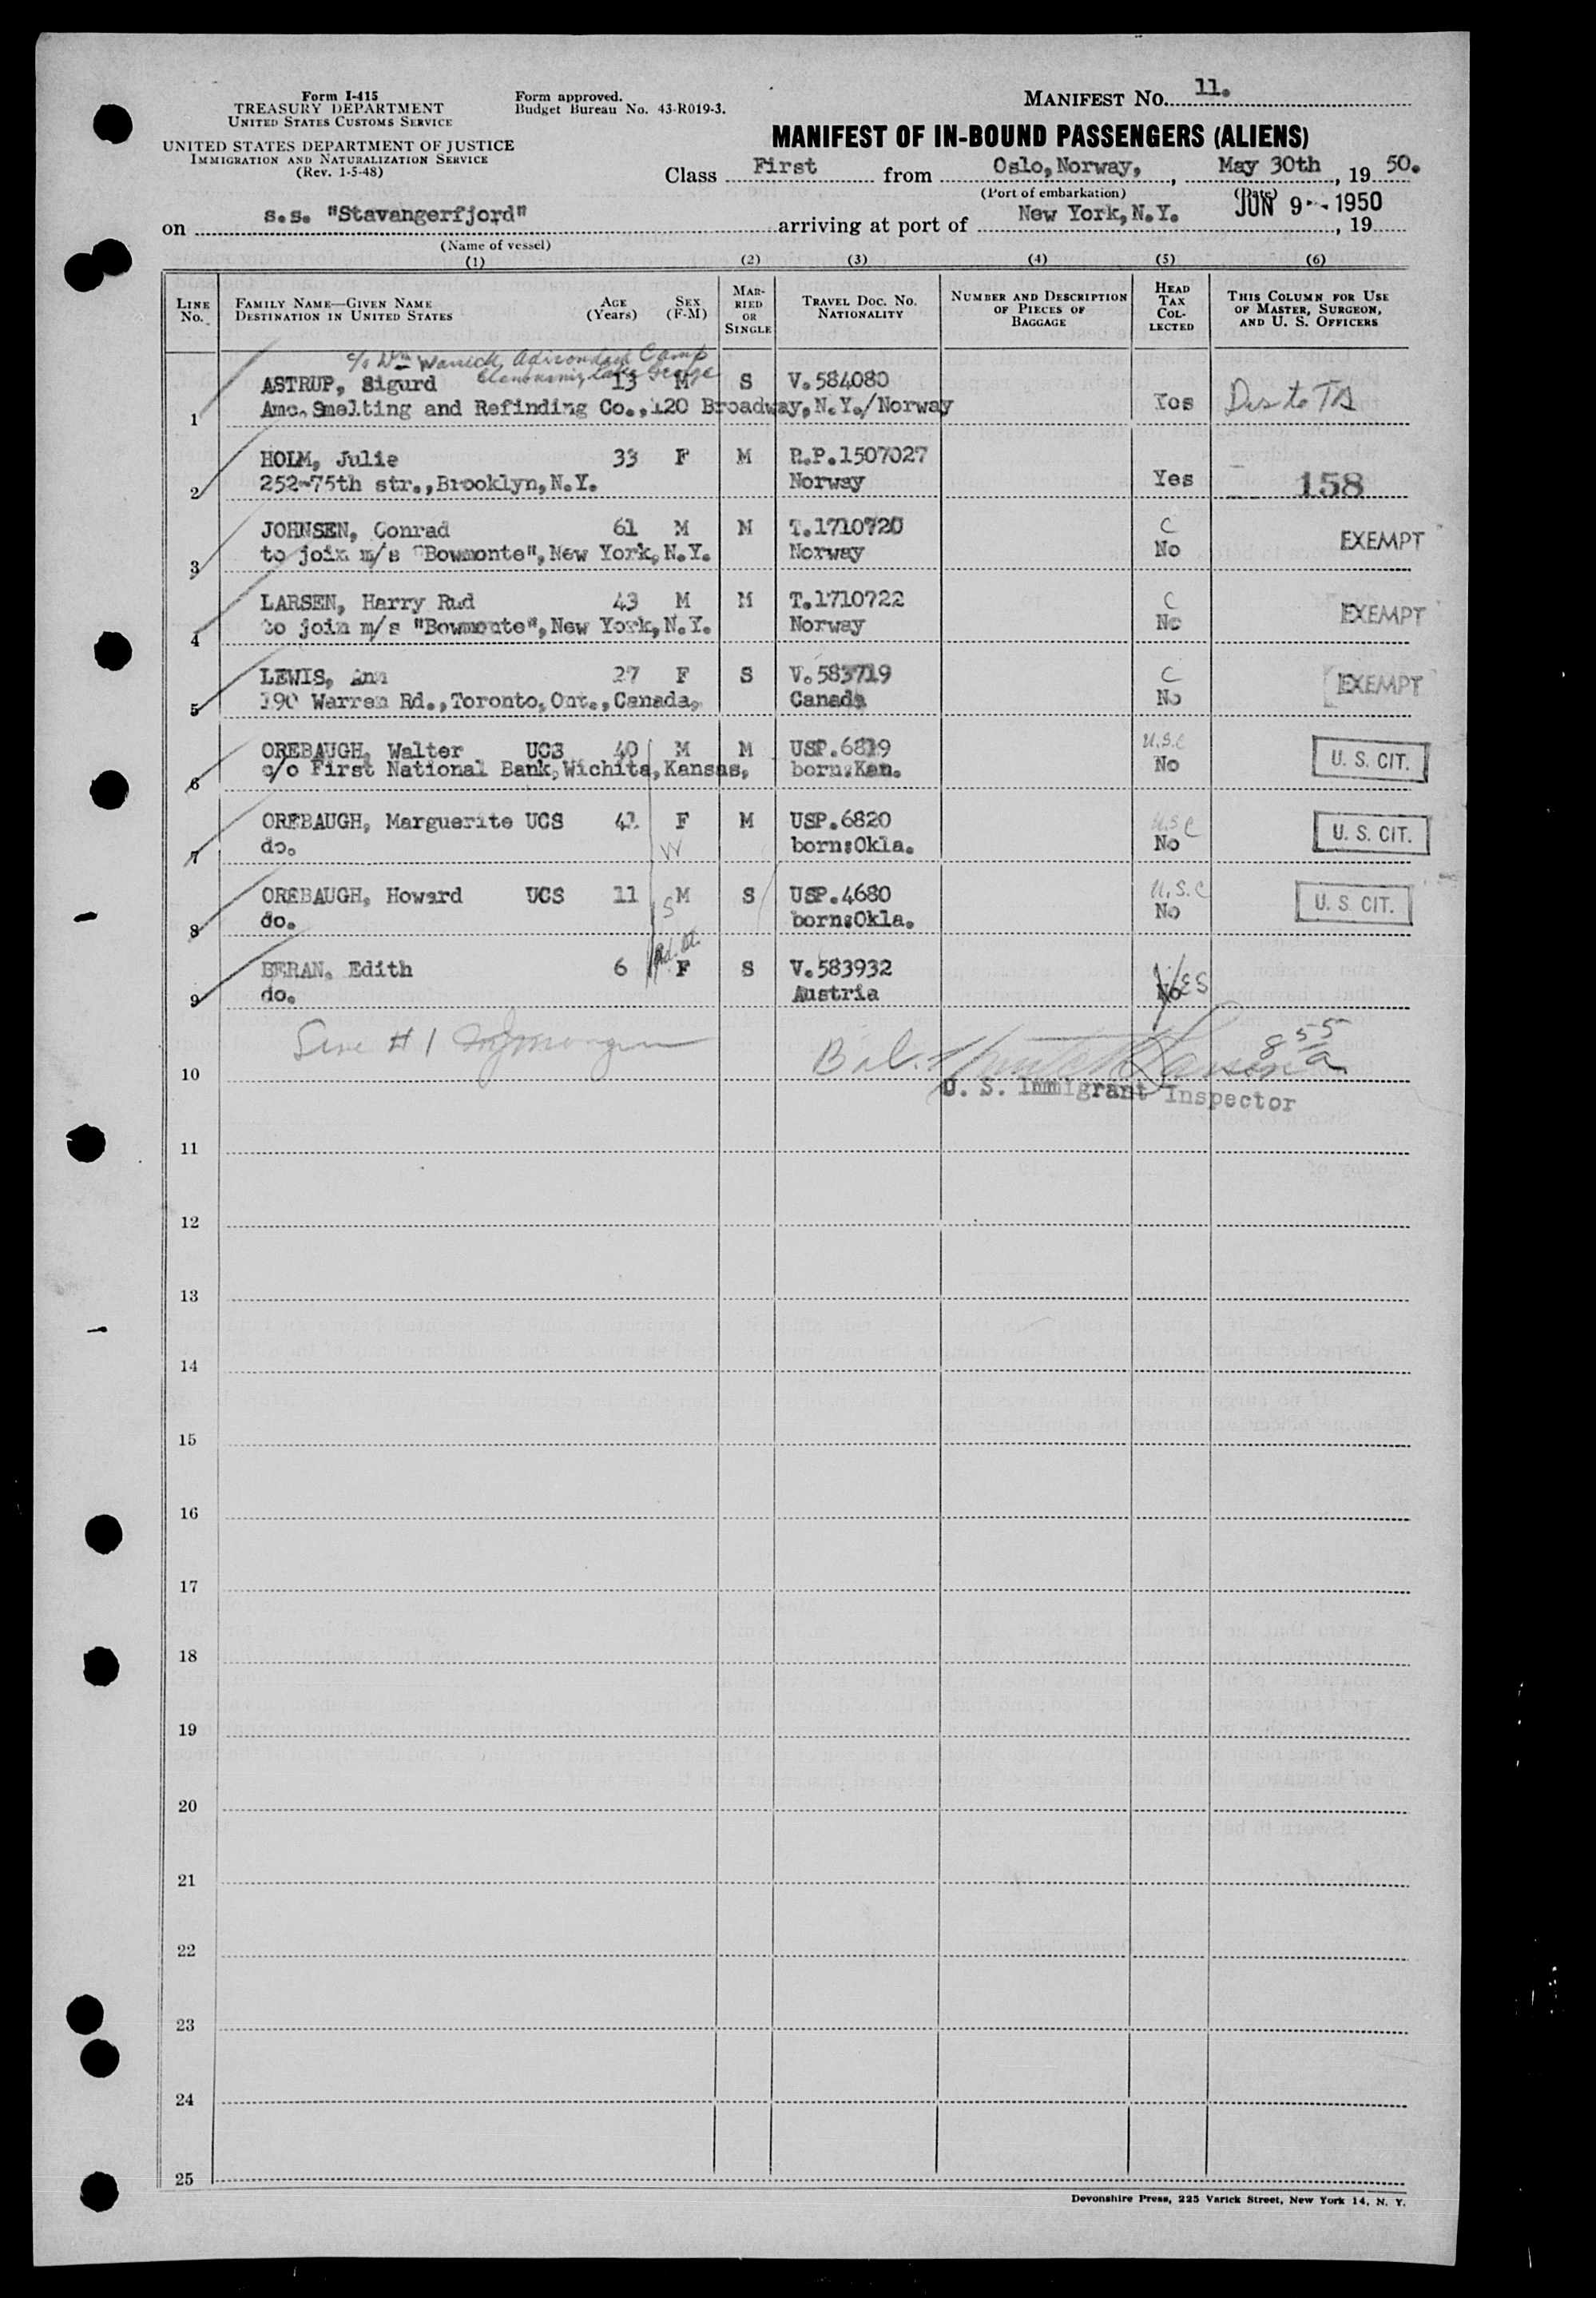 Form I-415
TREASURY DEPARTMENT
UNITED STATES CUSTOMS SERVICE
UNITED STATES DEPARTMENT OF JUSTICE
IMMIGRATION AND NATURALIZATION SERVICE
(Rev. 1-5-48)
Form approved.
Budget Bureau No. 43-R019-3.
MANIFEST No. 11.
MANIFEST OF IN-BOUND PASSENGERS (ALIENS)
Class First from Oslo, Norway, , May 30th , 19 50.
(Port of embarkation) (Date)
on s.s. "Stavangerfjord" arriving at port of New York, N.Y. JUN 9 - 1950 , 19
(Name of vessel)
(1) (2) (3) (4) (5) (6)
LINE No. FAMILY NAME—GIVEN NAME DESTINATION IN UNITED STATES AGE (Years) SEX (F-M) MARRIED OR SINGLE TRAVEL DOC. No. NATIONALITY NUMBER AND DESCRIPTION OF PIECES OF BAGGAGE HEAD TAX COLLECTED THIS COLUMN FOR USE OF MASTER, SURGEON, AND U. S. OFFICERS
c/o Wm Warrick, Adirondack Camp
Lake George
ASTRUP, Sigurd 13 M S V.584080
1 Amc. Smelting and Refinding Co., 120 Broadway, N.Y./Norway Yes
HOLM, Julie 33 F M R.P.1507027
2 252-75th str., Brooklyn, N.Y. Norway Yes 158
JOHNSEN, Conrad 61 M M T.1710720 C
3 to join m/s "Bowmonte", New York, N.Y. Norway No EXEMPT
LARSEN, Harry Rud 43 M M T.1710722 C
4 to join m/s "Bowmonte", New York, N.Y. Norway No EXEMPT
LEWIS, Ann 27 F S V.583719 C
5 190 Warren Rd., Toronto, Ont., Canada, Canada No EXEMPT
OREBAUGH, Walter UCS 40 M M USP.6819 U.S.C
6 c/o First National Bank, Wichita, Kansas, born:Kan. No U. S. CIT.
OREBAUGH, Marguerite UCS 41 F M USP.6820 U.S.C
7 do. W born:Okla. No U. S. CIT.
OREBAUGH, Howard UCS 11 M S USP.4680 U.S.C
8 do. S born:Okla. No U. S. CIT.
BERAN, Edith 6 F S V.583932
9 do. Austria No YES
Line #1
10 8 55 a
U. S. Immigrant Inspector
11
12
13
14
15
16
17
18
19
20
21
22
23
24
25
Devonshire Press, 225 Varick Street, New York 14, N. Y.